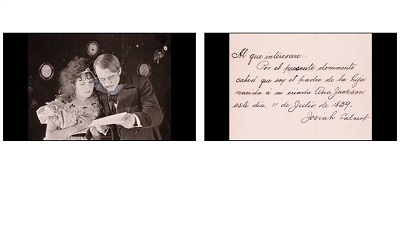 Al que interesare:-
Por el presente documento
sabed que soy el padre de la hija
nacida a su criada Ana Jackson
este día 11 de Julio de 1839.
Josiah Calvert